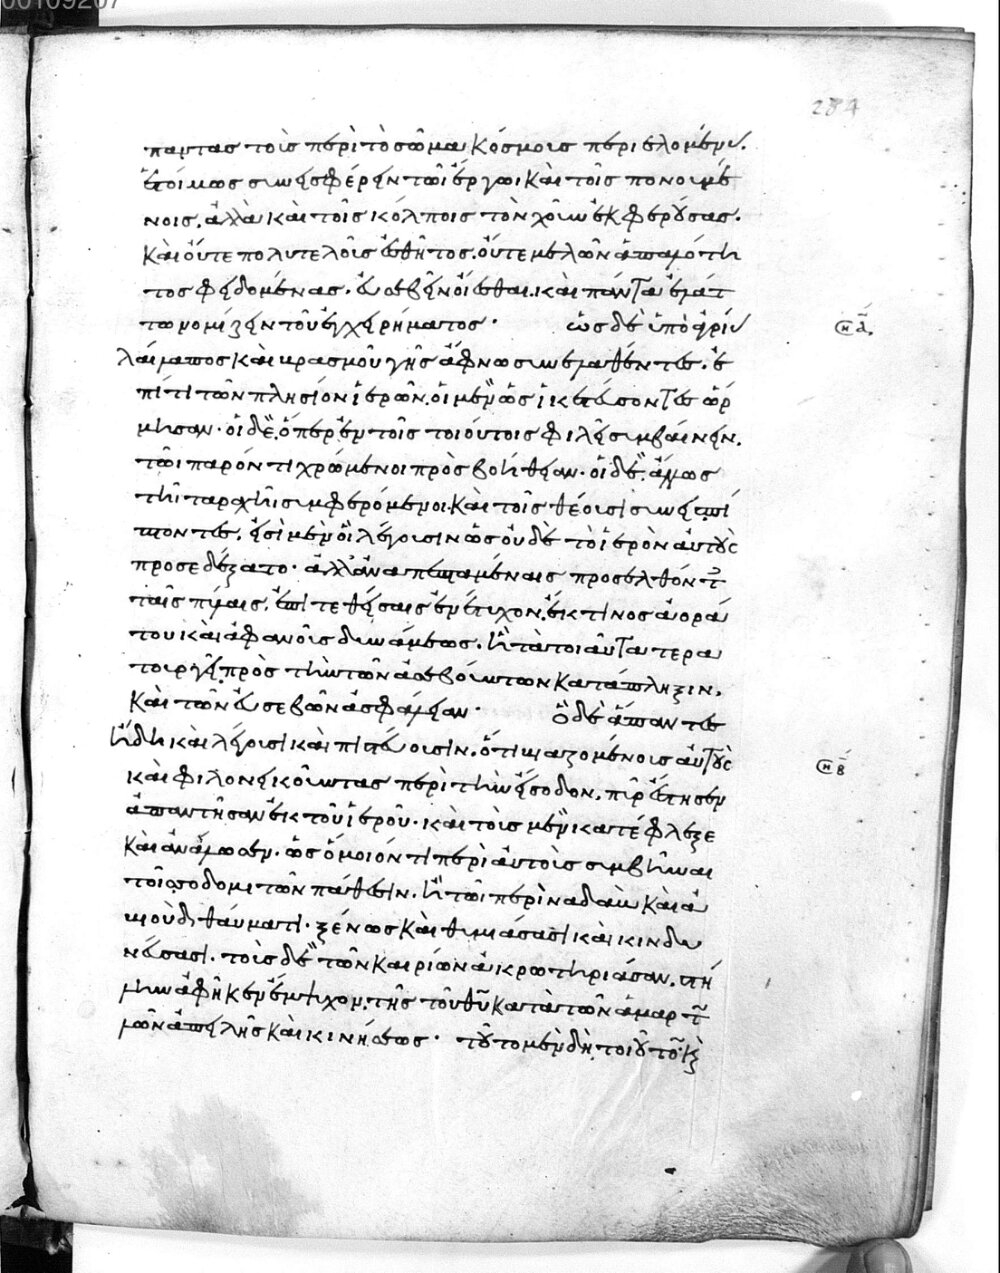 00109207
284
παντας τοῖς περὶ τὸ σῶμα κόσμοις περιελομένου.
ἑτοίμως συνεισφέρειν τῶι ἔργωι καὶ τοῖς πονουμέ
νοις. ἀλλὰ καὶ τοῖς κόλποις τὸν χοῦν ἐκφερούσας.
καὶ οὔτε πολυτελοῦς ἐσθῆτος. οὔτε μελῶν ἁπαλότη
τος φειδομένας. εὐσεβεῖν οἴεσθαι. καὶ πάνταἐργάτ
τω νομίζειν τοῦ ἐγχειρήματος· ὡς δὲ ὑπὸ ἀγρίου
η α.
λαίλαπος καὶ βρασμοῦ γῆς ἄφνω συνελαθέντες. ἐ
πί τι τῶν πλησίον ἱερῶν. οἱ μὲν ὡς ἱκετεύσοντες ὥρ
μησαν· οἱ δὲ. ὅπερ ἐν τοῖς τοιούτοις φιλεῖ συμβαίνειν.
τῶι παρόντι χρώμενοι πρὸς βοήθειαν· οἱ δὲ. ἄλλως
τῆι ταραχῆι συμφερόμενοι. καὶ τοῖς θέουσι συνεισπί
πτοντες. εἰσὶ μὲν οἳ λέγουσιν ὡς οὐδὲ τὸ ἱερὸν αὐτοὺς
προσεδέξατο· ἀλλ' ἀναπεπταμέναις προσελθόντες
ταῖς πύλαις. ἐπιτεθείσαις ἐνέτυχον. ἔκ τινος ἀορά
του καὶ ἀφανοῦς δυνάμεως. ἣ τὰ τοιαῦτα τερα
τουργεῖ. πρὸς τὴν τῶν ἀσεβούντων κατάπληξιν.
καὶ τῶν εὐσεβῶν ἀσφάλειαν· ὃ δὲ ἅπαντες
ἤδη καὶ λέγουσι καὶ πιστεύουσιν. ὅτι βιαζομένοις αὐτοὺς
η β
καὶ φιλονεικοῦντας περὶ τὴν εἴσοδον. πῦρ ἔστησεν
ἀπαντῆσαν ἐκ τοῦ ἱεροῦ· καὶ τοὺς μὲν κατέφλεξε
καὶ ἀνάλωσεν. ὡς ὅμοιόν τι περὶ αὐτοὺς συμβῆναι
τοῖς σοδομιτῶν πάθεσιν. ἢ τῶι περὶ ναδαὺ καὶ ἀ
βιοὺδ θαύματι· ξένως καὶ θυμιάσασι καὶ κινδυ
νεύσασι. τοὺς δὲ τῶν καιρίων ἀκρωτηριάσαν. στή
λην ἀφῆκεν ἔμψυχον. τῆς τοῦ θυ κατὰ τῶν ἁμαρτω
λῶν ἀπειλῆς καὶ κινήσεως· τοῦτο μὲν δὴ τοιοῦτο. καὶ